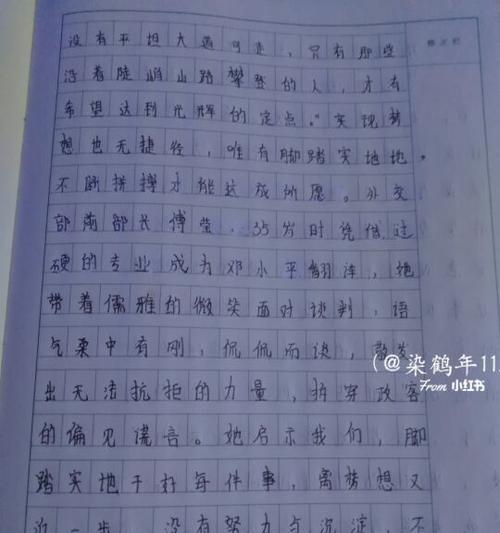 没有平坦大道可走，只有那些
沿着陡峭山路攀登的人，才有
希望达到光辉的定点。"实现梦
想也无捷径，唯有脚踏实地地，
不断拼搏才能达成所愿。外交
部前部长傅莹，35岁时凭借过
硬的专业成为邓小平翻译，她
带着儒雅的微笑面对谈判，语
气柔中有刚，侃侃而谈，散发
出无法抗拒的力量，拆穿政客
的偏见谎言。她启示我们，脚
踏实地干好每件事，离梦想又
近一步。没有努力与沉淀，不
(@染鹤年11
From 小红书